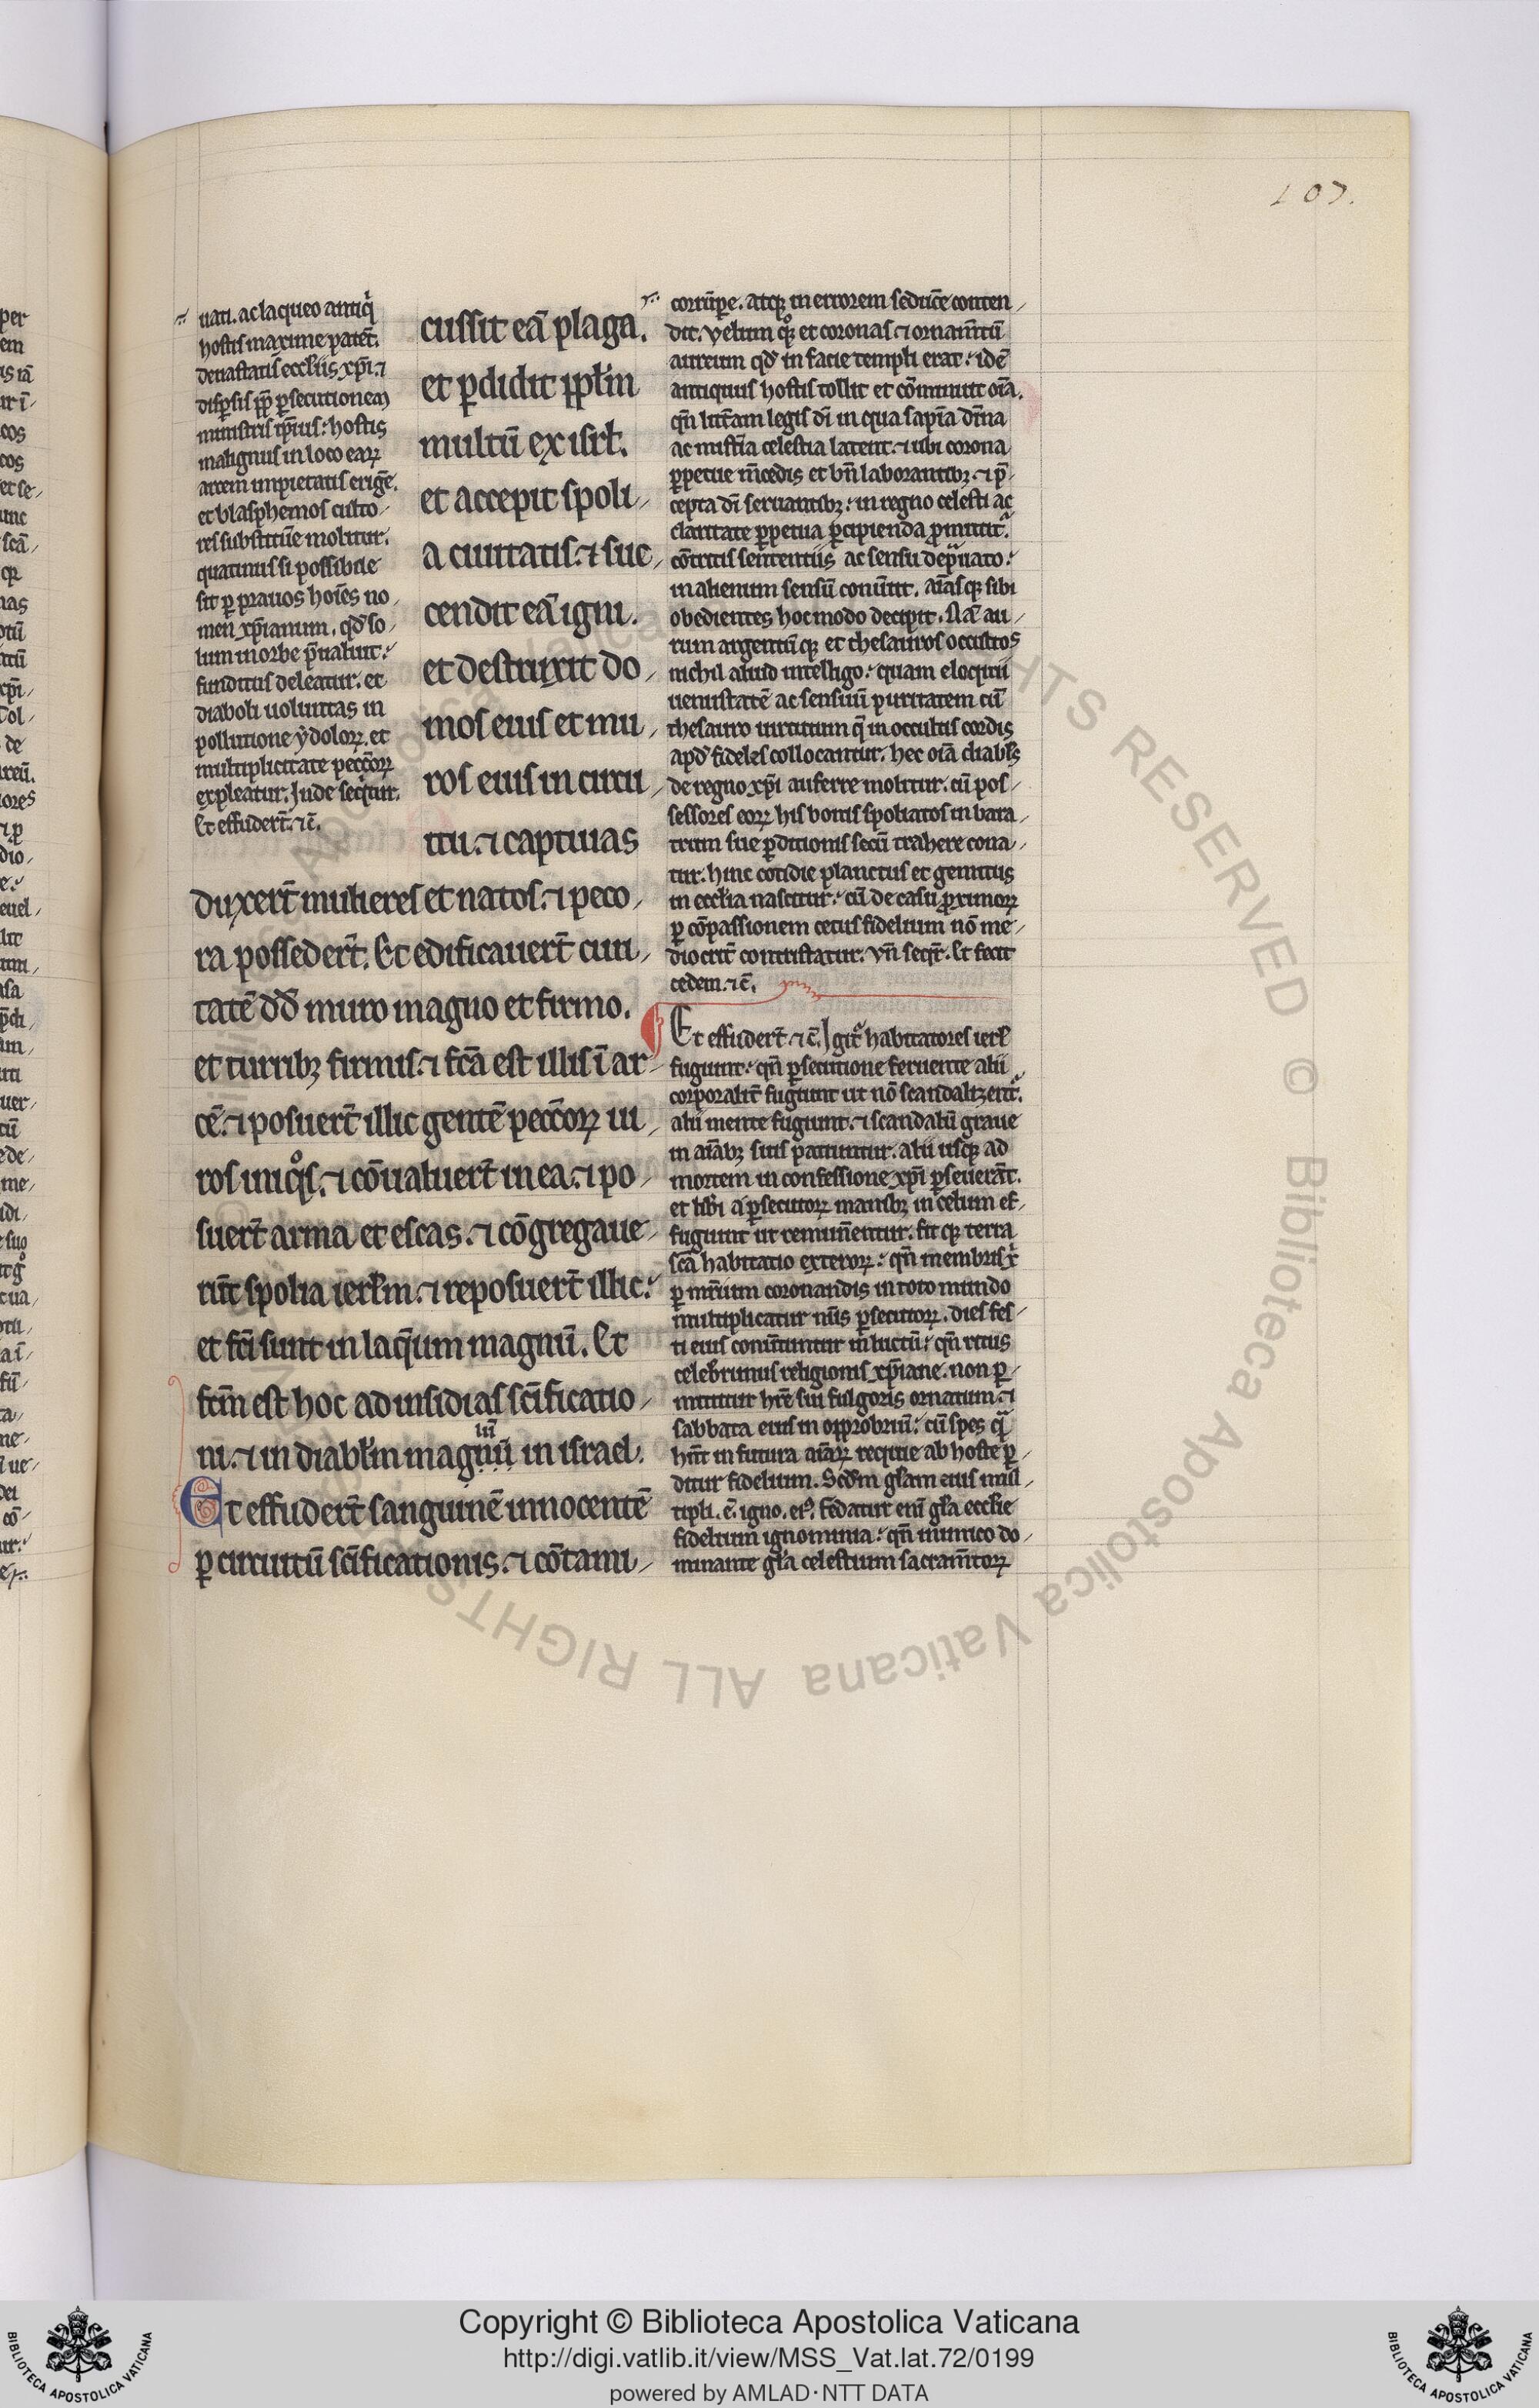 107.
uati. ac laqueo antiq̇
hostis maxime patēt.
deuastatis eccłiis xp̄i. ⁊
disp̱sis p̱p̄ p̱secutionem
ministris ip̄ius: hostis
malignus in loco eaꝝ
arcem impietatis erigē.
et blasphemos custo/
res substituē molitur.
quatinus si possibile
sit p̱ prauos hoīes no/
men xp̄ianum. qd̄ so/
lum in orbe p̄ualuit:
funditus deleatur. et
diaboli uoluntas in
pollutione ydoloꝝ. et
multiplicitate pecc̄oꝝ
expleatur. Inde seq̇tur.
Et effuderт̄. ⁊c̄.
cussit eā plaga.
et p̱didit pp̄łm
multū ex isrł.
et accepit spoli/
a ciuitatis. ⁊ suc/
cendit eā igni.
et destruxit do/
mos eius et mu/
ros eius in circu/
itu. ⁊ captiuas
duxerт̄ mulieres et natos. ⁊ peco/
ra possederт̄. Et edificauerт̄ ciui/
tatē dd̄ muro magno et firmo.
et turribꝫ firmis. ⁊ fc̄a est illis ī ar/
cē. ⁊ posuerт̄ illic gentē pecc̄oꝝ ui/
ros iniq̊s. ⁊ cōualuerт̄ in ea. ⁊ po/
suerт̄ arma et escas. ⁊ cōgregaue/
rūt spolia ierłm. ⁊ reposuerт̄ illic:
et fc̄i sunt in laq̄um magnū. Et
fc̄m est hoc ad insidias sc̄ificatio/
ni. ⁊ in diabłm magnū in israel.
Et effuderт̄ sanguinē innocentē
p̱ circuitū sc̄ificationis. ⁊ cōtami/
corrūp̱e. atqꝫ in errorem seducē conten/
dit. velum q̊qꝫ et coronas ⁊ ornam̄tū
aureum qd̄ in facie templi erat: idē
antiquus hostis tollit et cōminuit oīa.
qn̄ litt̄am legis dī in qua sapīa dīna
ac mist̄ia celestia latent. ⁊ ubi corona
p̱petue m̄cedis et bn̄ laborantibꝫ. ⁊ p̄/
cepta dī seruantibꝫ: in regno celesti ac
claritate p̱petua p̱cipienda p̱mittit̃.
cōtritis sententiis ac sensu dep̃uato:
in alienum sensū conūtit. aīasqꝫ sibi
obedientes hoc modo decipit. Nā au/
rum argentūqꝫ et thesauros occultos
nichil aliud intelligo: quam eloquii
uenustatē ac sensuū puritatem cū
thesauro uirtutum q̄ in occultis cordis
apd̄ fideles collocantur. hec oīa diabłs
de regno xp̄i auferre molitur. cū pos/
sessores eoꝝ his bonis spoliatos in bara/
trum sue p̱ditionis secū trahere cona/
tur. hinc cotidie planctus et gemitus
in eccłia nascitur: cū de casu p̱ximoꝝ
p̱ cōpassionem cetus fidelium nō me/
diocriт̄ contristatur. vn̄ seqт̄. Et fecit
cedem. ⁊c̄.
Et effuderт̄ ⁊c̄. Igit̃ habitatores ierłm
fugiunt: qn̄ p̱secutione feruente alii
corporaliт̄ fugiunt ut nō scandalizent̃.
alii mente fugiunt. ⁊ scandalū graue
in aīabꝫ suis patiuntur. alii usqꝫ ad
mortem in confessione xp̄i p̱seuerāт.
et lib̄i a p̱secutoꝝ manibꝫ in celum ef/
fugiunt ut remun̄entur. fitqꝫ terra
sc̄a habitatio exteroꝝ: qn̄ membris x̄
p̱ mr̄ium coronandis in toto mundo
multiplicatur nūs p̱secutoꝝ. dies fes/
ti eius conūtuntur in luctū: qn̄ ritus
celeb̄rimus religionis xp̄iane. non p̱/
mittitur hr̄e sui fulgoris ornatum. ⁊
sabbata eius in opprobriū: cū spes q̄
hn̄t in futura aīaꝝ requie ab hoste p̱/
ditur fidelium. Scd̄m głam eius mul/
tipli. ē. igno. ei⁹. fedatur enī gła eccłie
fidelium ignominia: qn̄ inimico do/
minante gła celestium sacram̄toꝝ
Copyright © Biblioteca Apostolica Vaticana
http://digi.vatlib.it/view/MSS_Vat.lat.72/0199
powered by AMLAD·NTT DATA